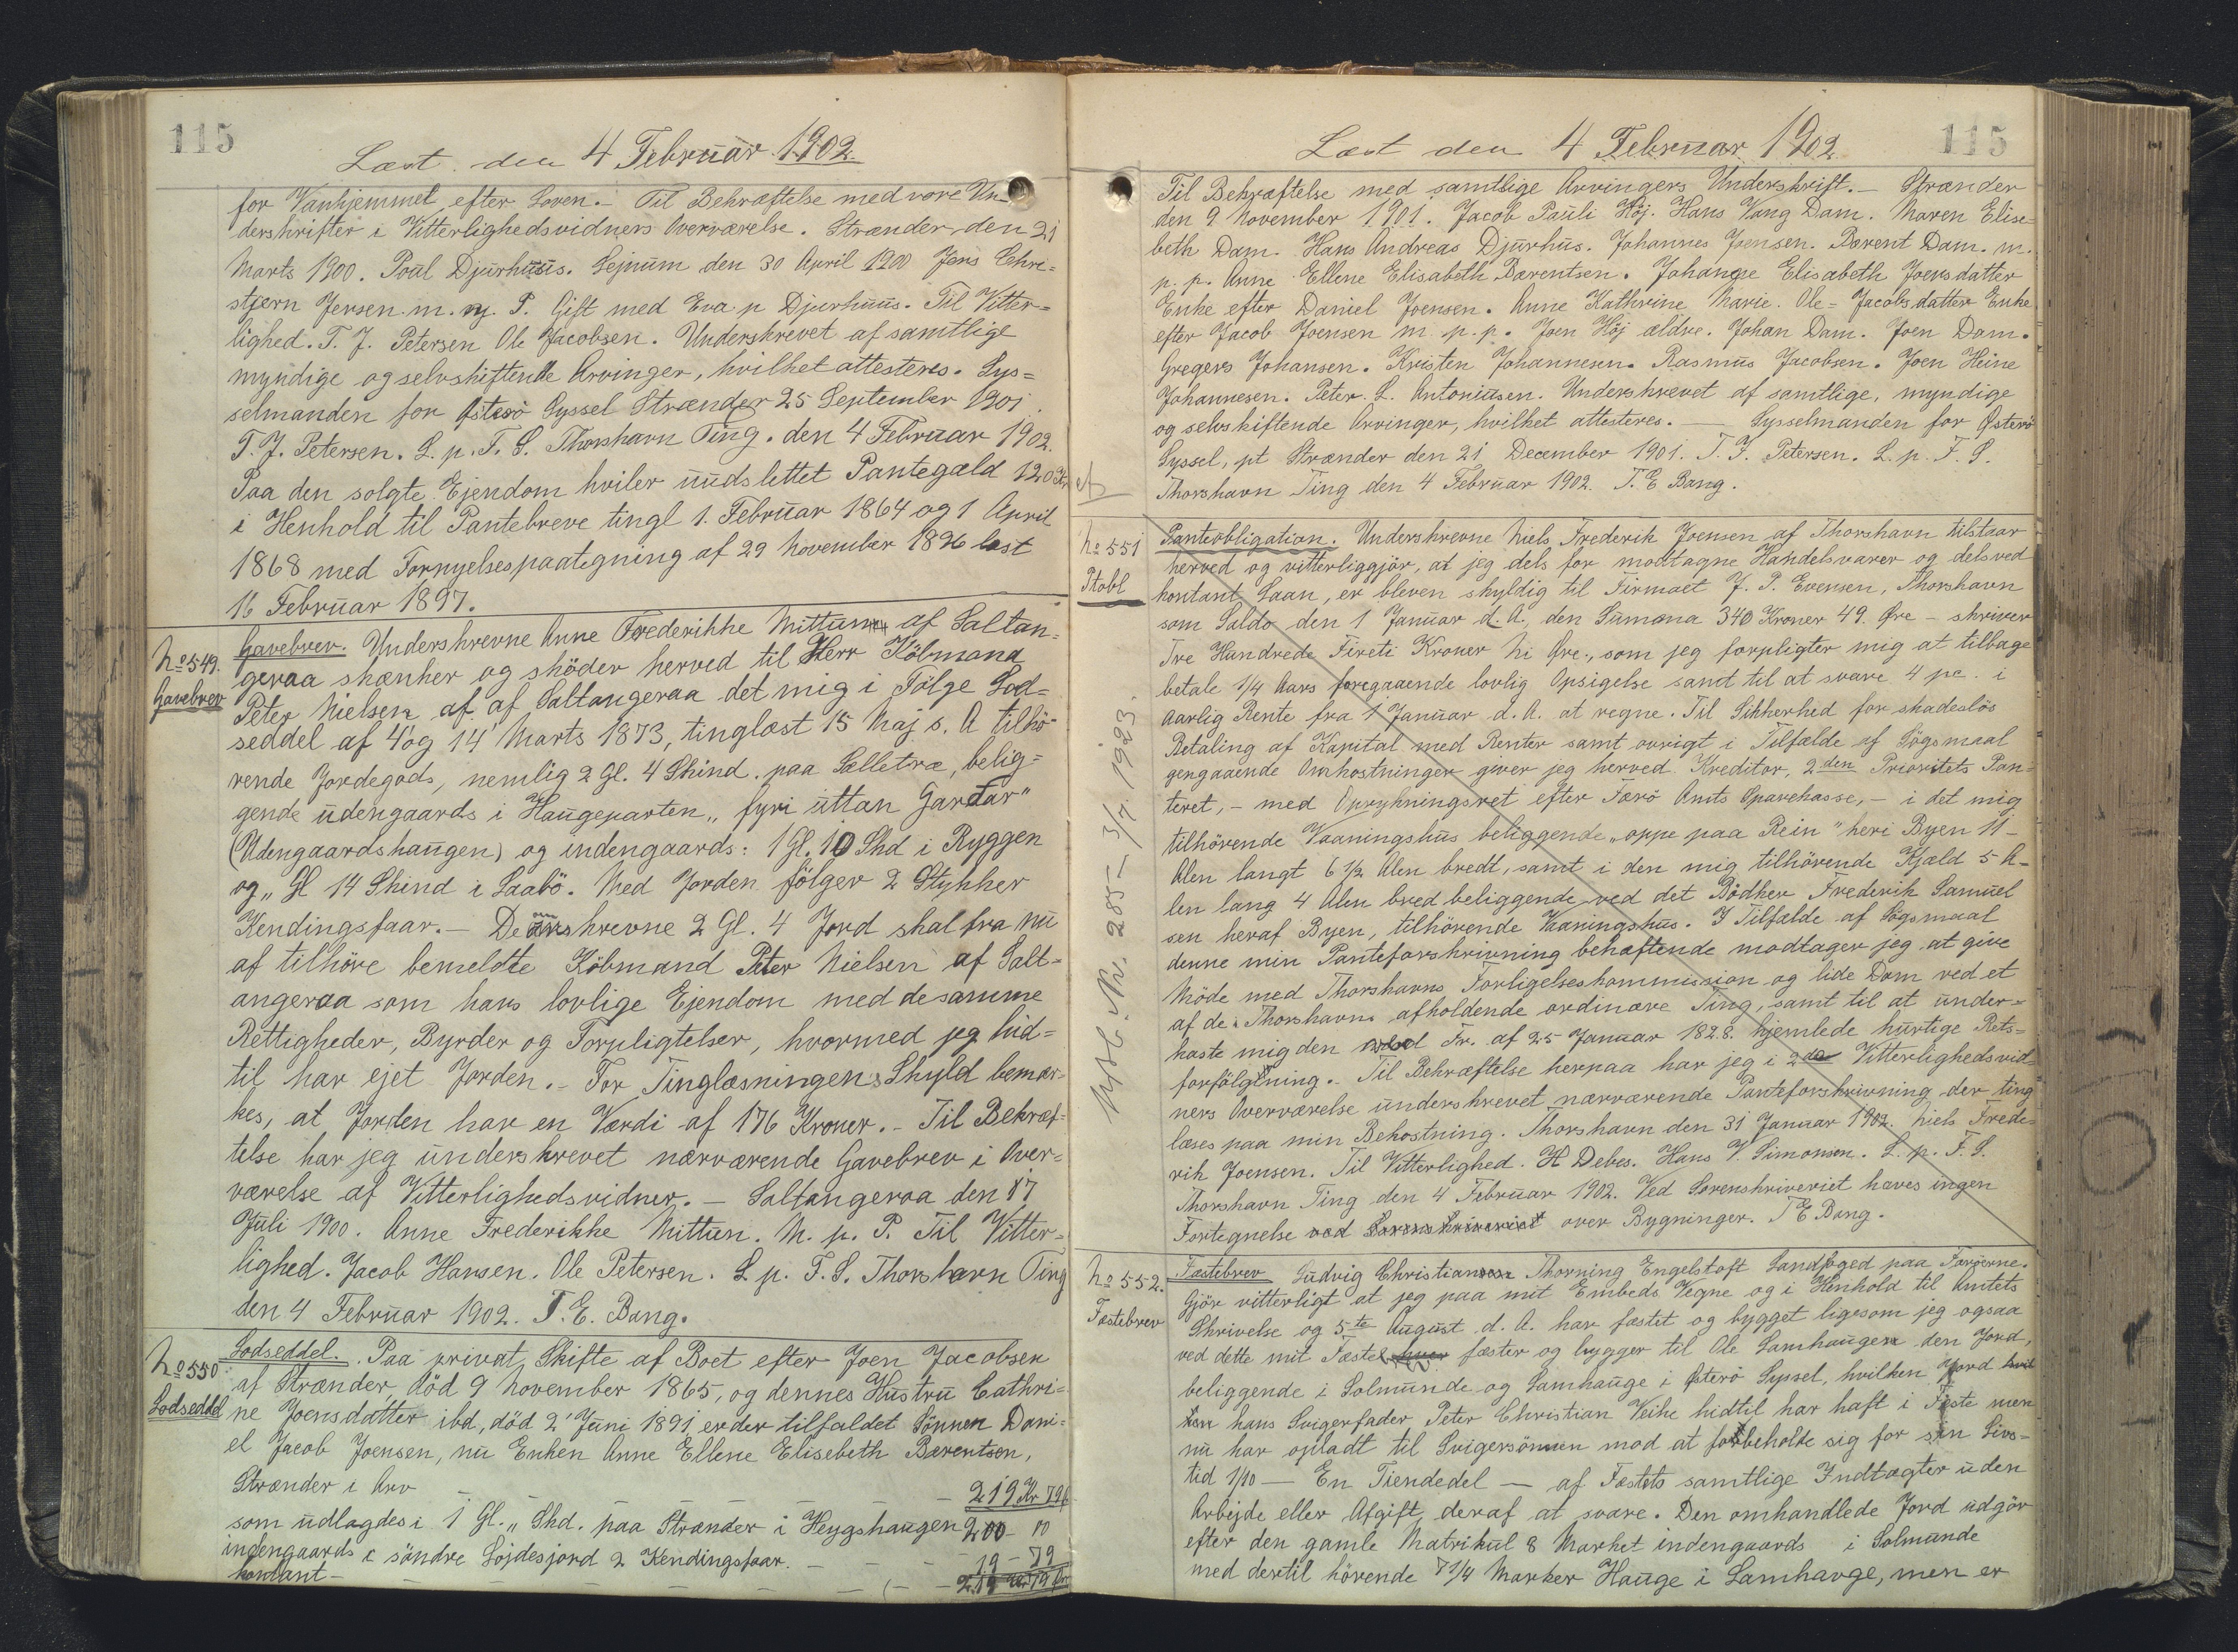 115
Læst den 4 Februar 1902.
for Vanhjemmel efter Loven. – Til Bekræftelse med vore Un-
derskrifter i Vitterlighedsvidners Overværelse. Strænder den 21
Marts 1900. Poul Djurhuus. Sejnum den 30 April 1900 Jens Chri=
stjern Jensen. m. p. P. Gift med Eva p Djurhuus. Til Vitter=
lighed. T. J. Petersen Ole Jacobsen. Underskrevet af samtlige
myndige og selvskiftende Arvinger, hvilket attesteres. Sys=
selmanden for Østerö Syssel Strænder 25 September 1901.
T. J. Petersen. L. p. F. S. Thorshavn Ting. den 4 Februar 1902.
Paa den solgte Ejendom hviler uudslettet Pantegæld 120 Kr
i Henhold til Pantebreve tingl 1. Februar 1864 og 1 April
1868 med Fornyelsespaategning af 29 November 1896 læst
16 Februar 1897.
No 549.
Gavebrev
Gavebrev. Underskrevne Anne Frederikke Mittun af Saltan=
geraa skænker og sköder herved til Herr Köbmand
Peter Nielsen af af Saltangeraa det mig i Fölge Lod=
seddel af 4 og 14 Marts 1873, tinglæst 15 Maj s. A tilhö-
rende Jordegods, nemlig 2 Gl. 4 Skind. paa Selletræ, belig=
gende udengaards i Haugeparten „fyri uttan Gardar"
(Udengaardshaugen) og indengaards: 1 Gl. 10 Skd i Ryggen
og „ Gl 14 Skind i Saabö. Med Jorden fölger 2 Stykker
Kendingsfaar. – De omskrevne 2 Gl. 4 Jord skal fra nu
af tilhöre bemeldte Köbmand Peter Nielsen af Salt=
angeraa som hans lovlige Ejendom med de samme
Rettigheder, Byrder og Forpligtelser, hvormed jeg hid=
til har ejet Jorden. – For Tinglæsningens Skyld bemær-
kes, at Jorden har en Værdi af 176 Kroner. – Til Bekræf=
telse har jeg underskrevet nærværende Gavebrev i Over=
værelse af Vitterlighedsvidner. – Saltangeraa den 17
Juli 1900. Anne Frederikke Mittun. M. p. P. Til Vitter=
lighed. Jacob Hansen. Ole Petersen. L. p. F. S. Thorshavn Ting
den 4 Februar 1902. T. E. Bang.
No 550
Lodseddel
Lodseddel. Paa privat Skifte af Boet efter Joen Jacobsen
af Strænder, död 9 November 1865, og dennes Hustru Cathri=
ne Joensdatter ibd, död 2' Juni 1891, er der tilfaldet Sönnen Dani=
el Jacob Joensen, nu Enken Anne Ellene Elisebeth Bærentsen,
Strænder i Arv 219 Kr 79
som udlagdes i 1 Gl. „ Skd. paa Strænder i Heygshaugen 200 – 00
indengaards i söndre Lojdesjord 2 Kendingsfaar.
kontant – 19 – 79
219 Kr 79 Ør
115
Læst den 4 Februar 1902
Til Bekræftelse med samtlige Arvingers Underskrift. – Strænder
den 9 November 1901. Jacob Pauli Höj. Hans Vang Dam. Maren Elise-
beth Dam. Hans Andreas Djurhus. Johannes Joensen. Barent Dam. m.
p. p. Anne Ellene Elisabeth Bærentsen. Johanne Elisabeth Joensdatter
Enke efter Daniel Joensen. Anne Kathrine Marie. Ole- Jacobsdatter Enke
efter Jacob Joensen m. p. p. Joen Höj ældre. Johan Dam. Joen Dam.
Gregers Johansen. Kristen Johannesen. Rasmus Jacobsen. Joen Heine
Johannesen. Peter. L. Antoniusen. Underskrevet af samtlige, myndige
og selvskiftende Arvinger, hvilket attesteres. – Sysselmanden for Østerö
Syssel, pt Strænder den 21 December 1901. T. J. Petersen. L. p. F. S.
Thorshavn Ting den 4 Februar 1902. T. E Bang.
No 551
Ptobl
Panteobligation. Underskrevne Niels Frederik Joensen af Thorshavn tilstaar
herved og vitterliggjör, at jeg dels for modtagne Handelsvarer og dels ved
kontant Laan, er bleven skyldig til Firmaet J. P. Evensen, Thorshavn
som Saldo den 1 Januar d. A., den Summa 340 Kroner 49. Øre – skriver
Tre Hundrede Fireti Kroner Ni Øre., som jeg forpligter mig at tilbage
betale 1/4 Aars foregaaende lovlig Opsigelse samt til at svare 4 pc. i
aarlig Rente fra 1 Januar d. A. at regne. Til Sikkerhed for skadeslös
Betaling af Kapital med Renter samt ovrigt i Tilfælde af Sögsmaal
gengaaende Omkostninger giver jeg herved Kreditor, 2den Prioritets Pan=
teret, – med Oprykningsret efter Færö Amts Sparekasse, – i det mig
tilhörende Vaaningshus beliggende „oppe paa Rein" heri Byen 11 –
Alen langt 6 1/2 Alen bredt, samt i den mig tilhörende Kjæld 5 A-
len lang 4 Alen bred beliggende ved det Bödker Frederik Samuel
sen heraf Byen, tilhörende Vaaningshus. I Tilfælde af Sögsmaal
denne min Panteforskrivning behæftende modtager jeg at give
Möde med Thorshavns Forligelseskommission og lide Dom ved et
af de i Thorshavn afholdende ordinære Ting, samt til at under=
kaste mig den ved Fr. af 25 Januar 1828. hjemlede hurtige Rets=
forfölgning. – Til Bekræftelse herpaa har jeg i 2de Vitterlighedsvid
ners Overværelse underskrevet nærværende Panteforskrivning der ting
læses paa min Bekostning. Thorshavn den 31 Januar 1902. Niels Frede=
rik Joensen. Til Vitterlighed. H Debes. Hans V. Simonsen. L. p. F. S.
Thorshavn Ting den 4 Februar 1902. Ved Sorenskriveriet haves ingen
Fortegnelse ved Sorenskriveriet over Bygninger. T E Bang.
Udsl. Nr. 285 – 3/7. 1923.
No 552.
Fæstebrev
Fæstebrev Ludvig Christian Thorning Engelstoft Landfoged paa Færöerne.
Gjör vitterligt at jeg paa mit Embeds Vegne og i Henhold til Amtets
Skrivelse og 5te August d. A. har fæstet og bygget ligesom jeg ogsaa
ved dette mit Fæstebrev fæster og bygger til Ole Lamhaugen den Jord,
beliggende i Solmunde og Lamhauge i Østerö Syssel, hvilken Jord
hans Svigerfader Peter Christian Veihe hidtil har haft i Fæste men
nu har opladt til Svigersönnen mod at forbeholde sig for sin Livs=
tid 1/10 – En Tiendedel – af Fæstets samtlige Indtægter uden
Arbejde eller Afgift deraf at svare. Den omhandlede Jord udgör
efter den gamle Matrikul 8 Marker indengaards i Solmunde
med dertil hörende 7 1/4 Marker Hauge i Lamhauge, men er